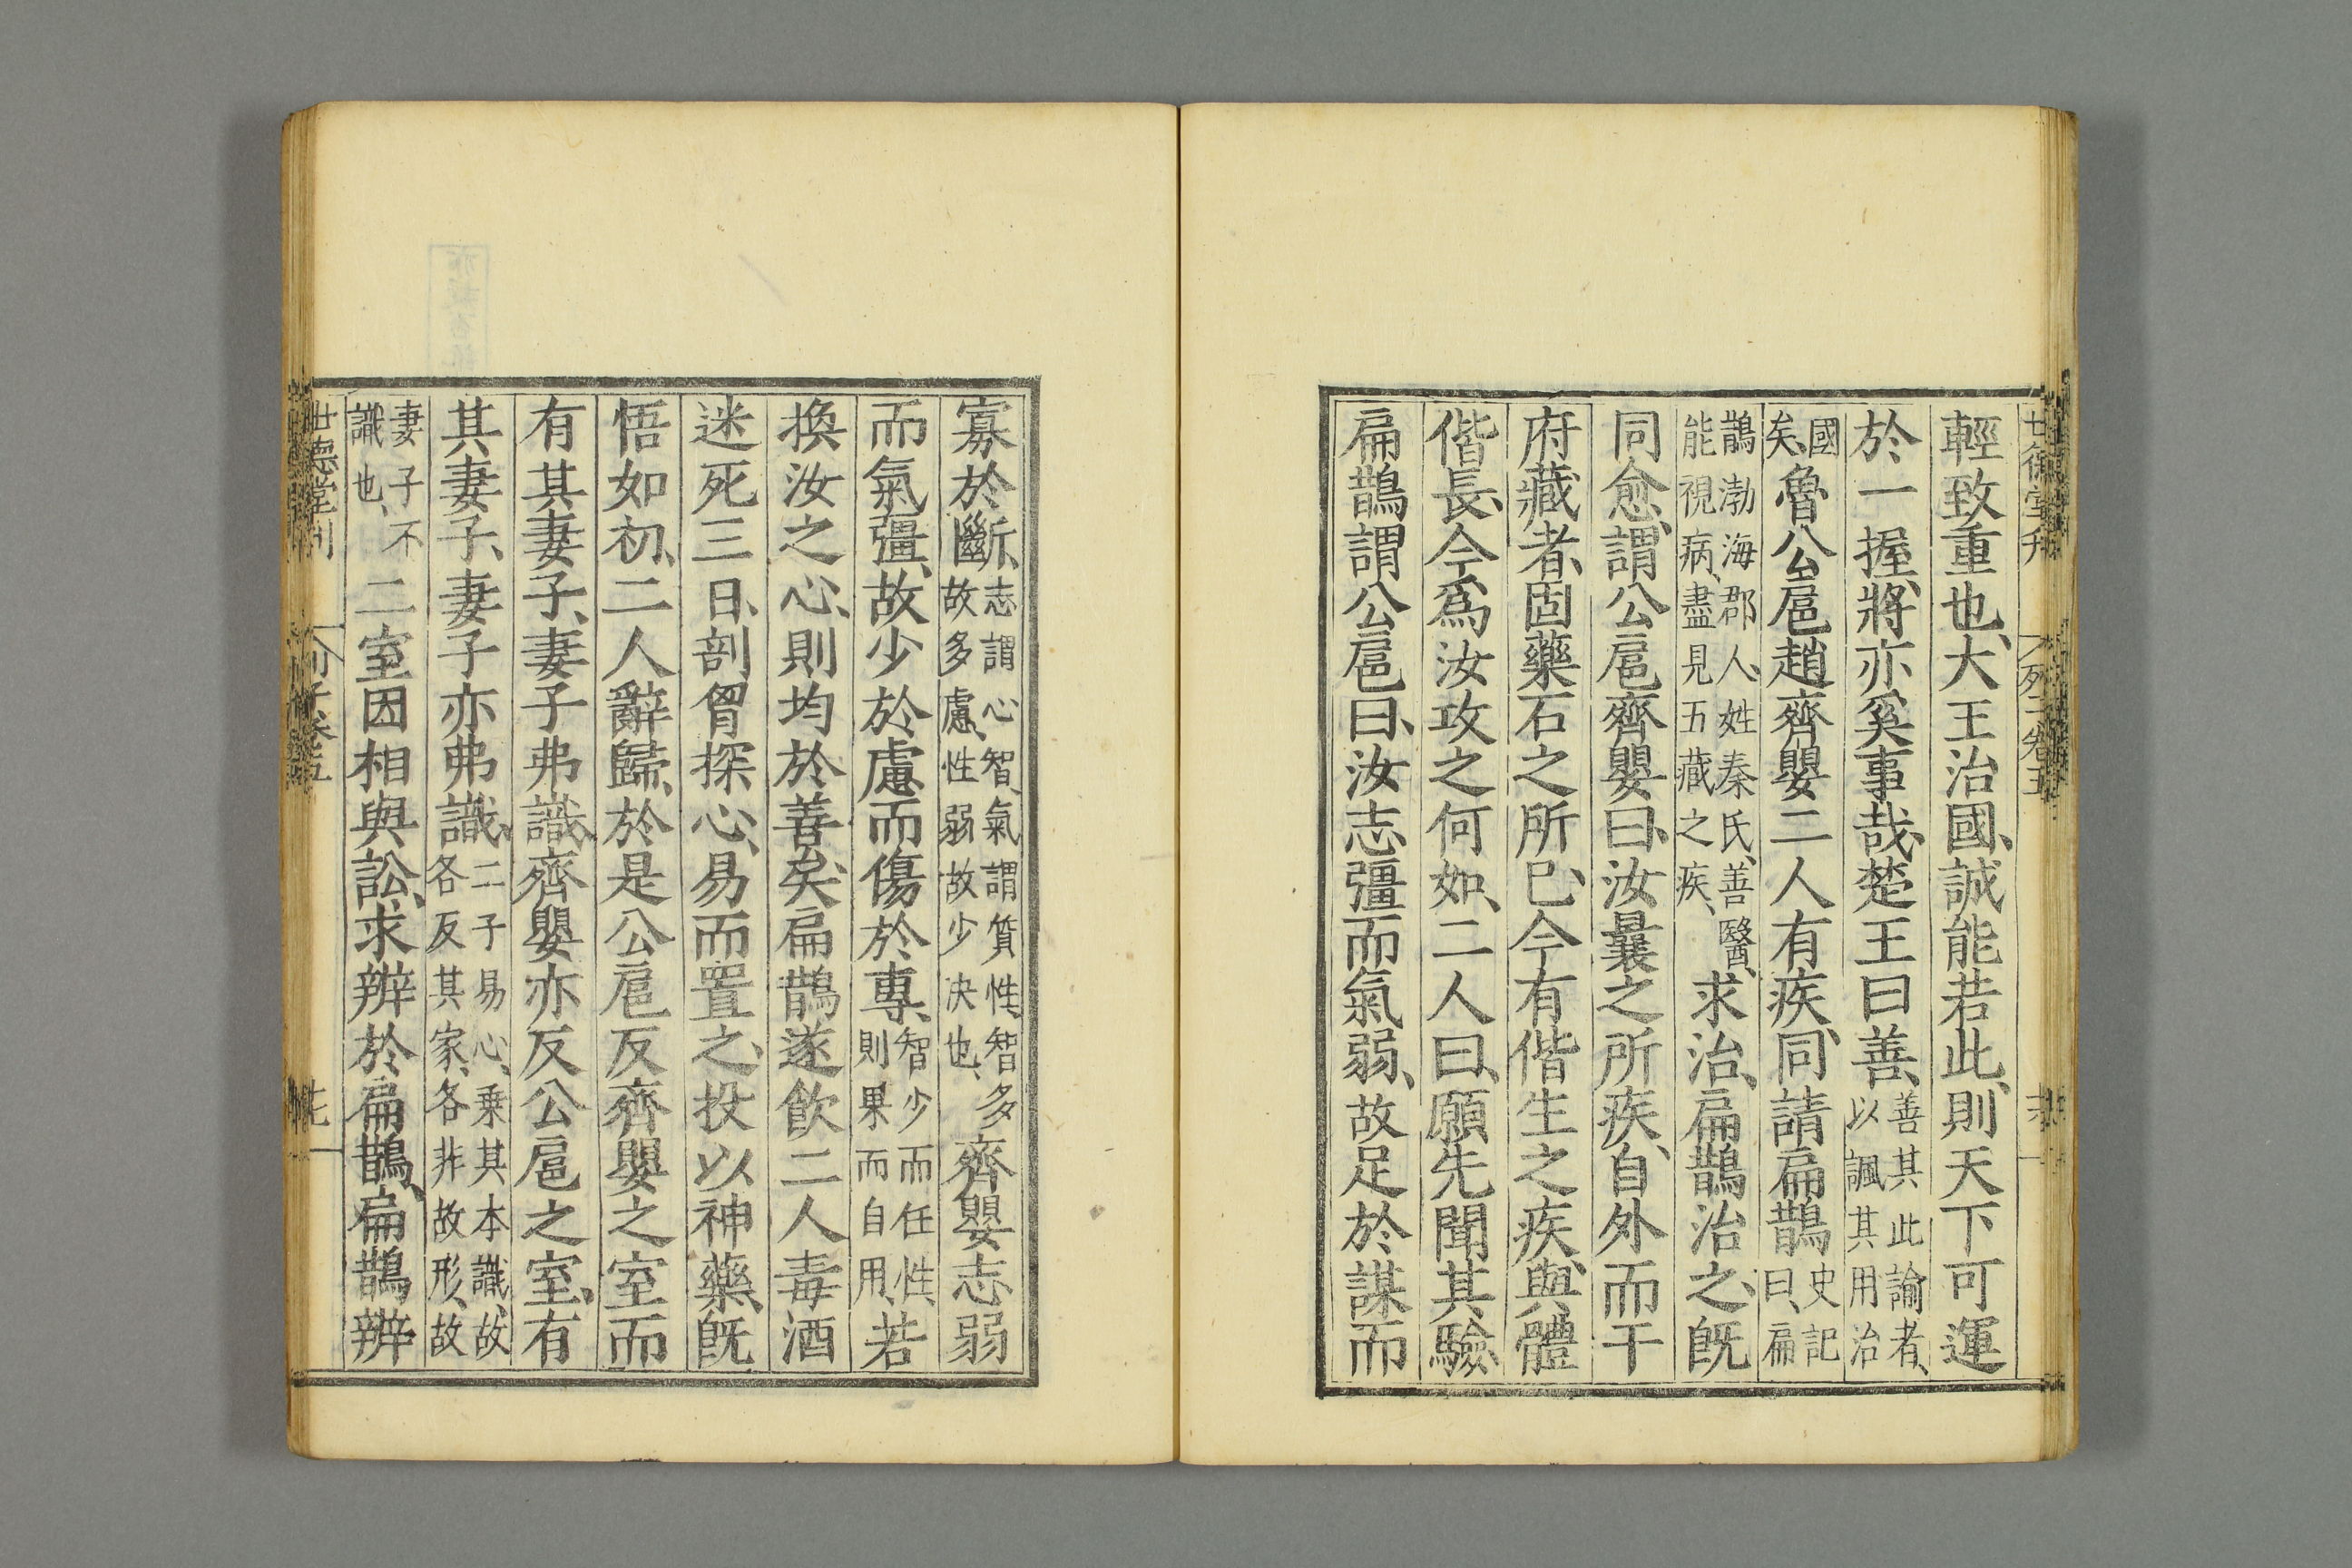 輕致重也、大王治國、誠能若此、則天下可運
於一握、將亦奚事哉、楚王曰善、善其此諭者、以諷其用治
國矣、魯公扈趙齊嬰二人有疾、同請扁鵲史記曰、扁
鵲渤海郡人、姓秦氏、善醫、能視病、盡見五藏之疾、求治、扁鵲治之、旣
同愈、謂公扈齊嬰曰、汝曩之所疾、自外而干
府藏者、固藥石之所已、今有偕生之疾、與體
偕長、今爲汝攻之何如、二人曰、願先聞其驗、
扁鵲謂公扈曰、汝志彊而氣弱、故足於謀而
寡於斷、志謂心智、氣謂質性、智多故多慮、性弱故少决也、齊嬰志弱
而氣彊、故少於慮、而傷於專、智少而任性、則果而自用、若
換汝之心、則均於善矣、扁鵲遂飮二人毒酒
迷死三日、剖胷探心、易而置之、投以神藥、旣
悟如初、二人辭歸、於是公扈反齊嬰之室而
有其妻子、妻子弗識、齊嬰亦反公扈之室、有
其妻子、妻子亦弗識、二子易心、乗其本識、故各反其家、各非故形、故
妻子不識也、二室因相與訟、求辨於扁鵲、扁鵲辨
世德堂刊
列子卷五